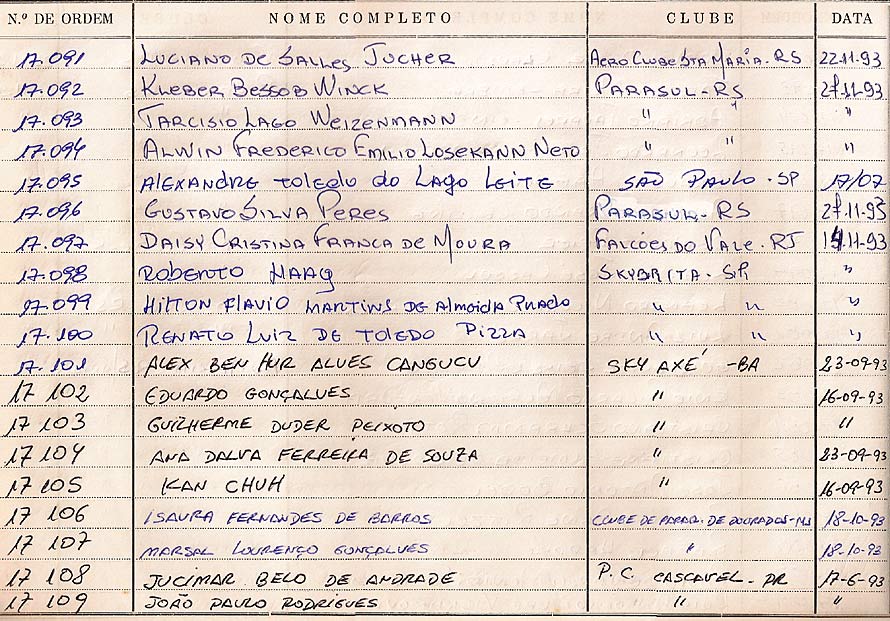 N.º DE ORDEM NOME COMPLETO CLUBE DATA
17.091 LUCIANO DE SALLES JUCHER AERO CLUBE STA MARIA. RS 22.11.93
17.092 KLEBER BESSOB WINCK PARASUL-RS 27.11.93
17.093 TARCISIO LAGO WEIZENMANN " " "
17.094 ALWIN FREDERICO EMILIO LOSEKANN NETO " " "
17.095 ALEXANDRE TOLEDO do LAGO LEITE SÃO PAULO.SP 17/07
17.096 GUSTAVO SILVA PERES PARASUL-RS 27.11.93
17.097 DAISY CRISTINA FRANCA DE MOURA FALCÕES DO VALE. RJ 11.93
17.098 ROBERTO HAAG SKYBRITA. SP "
17.099 HILTON FLAVIO MARTINS DE ALMEIDA PRADO " " "
17.100 RENATO LUIZ DE TOLEDO PIZZA " " "
17.101 ALEX BEN HUR ALVES CANGUCU SKY AXÉ -BA 23-09-93
17 102 EDUARDO GONÇALVES " 16-09-93
17 103 GUILHERME DUDER PEIXOTO " "
17 104 ANA DALVA FERREIRA DE SOUZA " 23-09-93
17 105 KAN CHUH " 16-09-93
17 106 ISAURA FERNANDES DE BARROS CLUBE DE PARAQ. DE DOURADOS-MS 18-10-93
17 107 MARSAL LOURENÇO GONÇALVES " 18-10-93
17 108 JUCIMAR BELO DE ANDRADE P.C. CASCAVEL. PR 17-6-93
17 109 JOÃO PAULO RODRIGUES " "